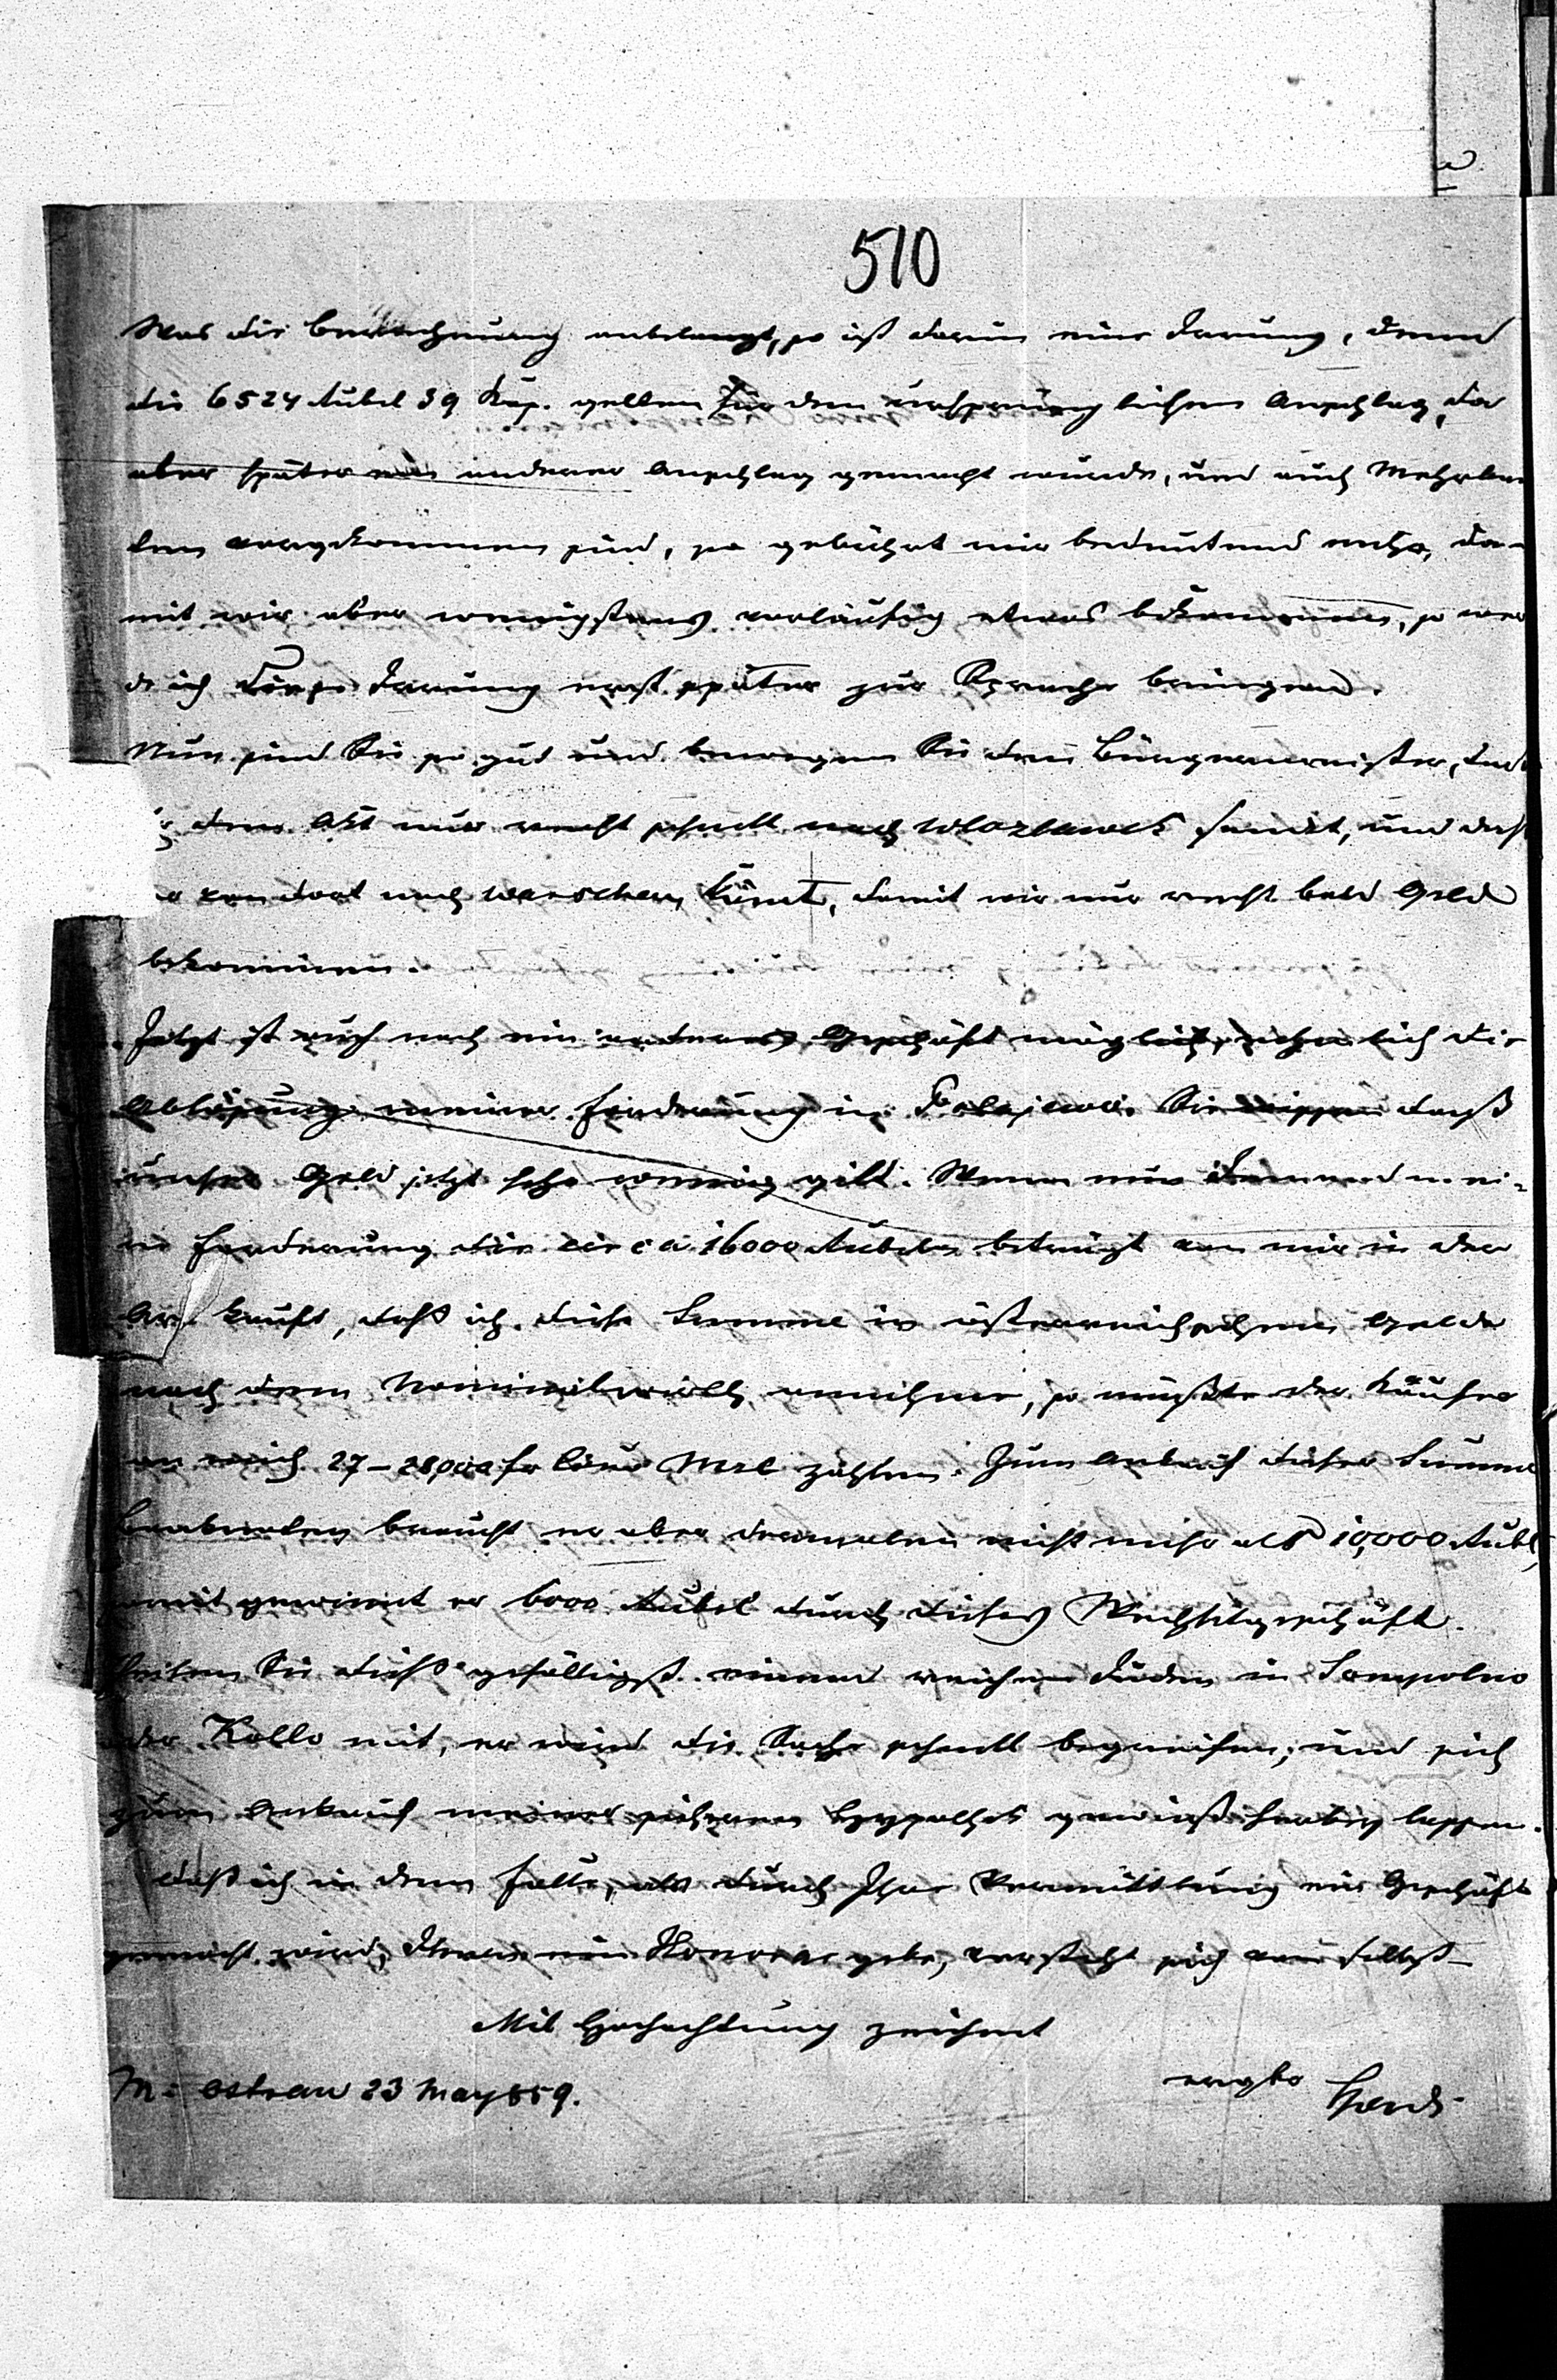 510
Was die Berechnung anbelangt, so ist darin eine Irrung, denn
die 6524 Rubel 39 Kop. gelten für den ursprünglichen Anschlag, da
aber später ein anderer Anschlag gemacht wurde, und auch Mehrbau
ten vorgekommen sind, so gebührt mir bedeutend mehr, da-
mit wir aber wenigstens vorläufig etwas bekommen, so wer
de ich diese Irrung erst später zur Sprache bringen.
Nun sind Sie so gut und bewegen Sie den Bürgermeister, daß
den Akt nur recht schnell nach Wlozlawek sendet, und daß
von dort nach Warschau kömt, damit wir nur recht bald Geld
bekommen.
Jetzt ist auch noch ein anderes Geschäft möglich, nehmlich die
Ablösung meiner Forderung in Sie wissen daß
unser Geld jetzt sehr wenig gilt. Wenn nun Jemand mei-
ne Forderung die circa 16000 Rubeln beträgt von mir in der
Art kauft, daß ich diese Summe in österreichischem Gelde
nach dem Nominalwerth annehme, so müßte der Käufer
an mich 27-28000 zahlen. Zum Ankauf dieser Summe
braucht er aber dermalen nicht mehr als 10,000 Rubl,
somit gewinnt er 6000 Rubel durch dieses Wechselgeschäft.
Theilen Sie dieß gefälligst einem reichen Juden in Sompolno
oder Kollo mit, er wird die Sache schnell begreifen, und sich
zum Ankauf meiner sicheren Hypothek gewiß herbey lassen.
Daß ich in dem Falle, als durch Ihre Vermittlung ein Geschäft
gemacht wird, Ihnen ein Honorar gebe, versteht sich von selbst-
Mit Hochachtung zeichnet
M: Ostrau 23 May 859.
ergbr